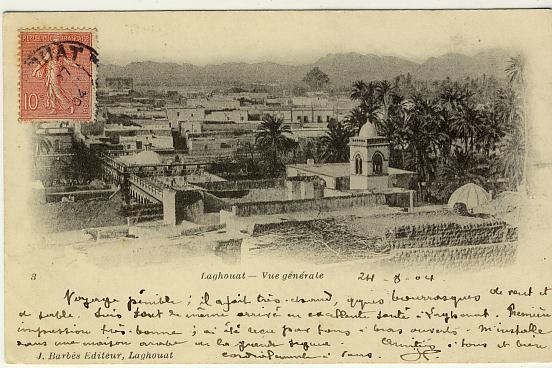 RÉPUBLIQUE FRANÇAISE
10
3 Laghouat — Vue générale 24-8-04
Voyage pénible ; il a fait très-chaud, qques bourrasques de vent et
de sable. Suis tout de même arrivé en excellente santé à Laghouat. Première
impression très-bonne ; ai été reçu par bras ouverts. M'installe
dans une maison arabe de la grande
J. Barbès Editeur, Laghouat
cordialement à vous.